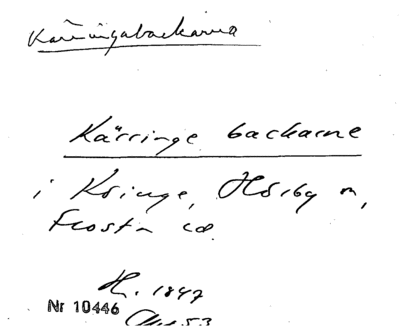 Kärringabackarna
Kärringe backarne
i Kringe, Hörby sn,
Frosta hd
H. 1847
Nr 10446